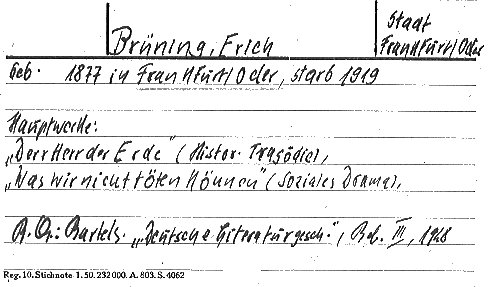 Brüning, Erich
Stadt
Frankfurt/Oder
Geb. 1877 in Frankfurt/Oder, starb 1919
Hauptwerke:
„Derr Herr der Erde" (Histor. Tragödie),
„Was wir nicht töten können" (Soziales Drama),
A.Qu.: Bartels. „Deutsche Literaturgesch.", Bd. III, 1928
Reg. 10. Stichnote 1. 50. 232000. A. 803. S. 4062